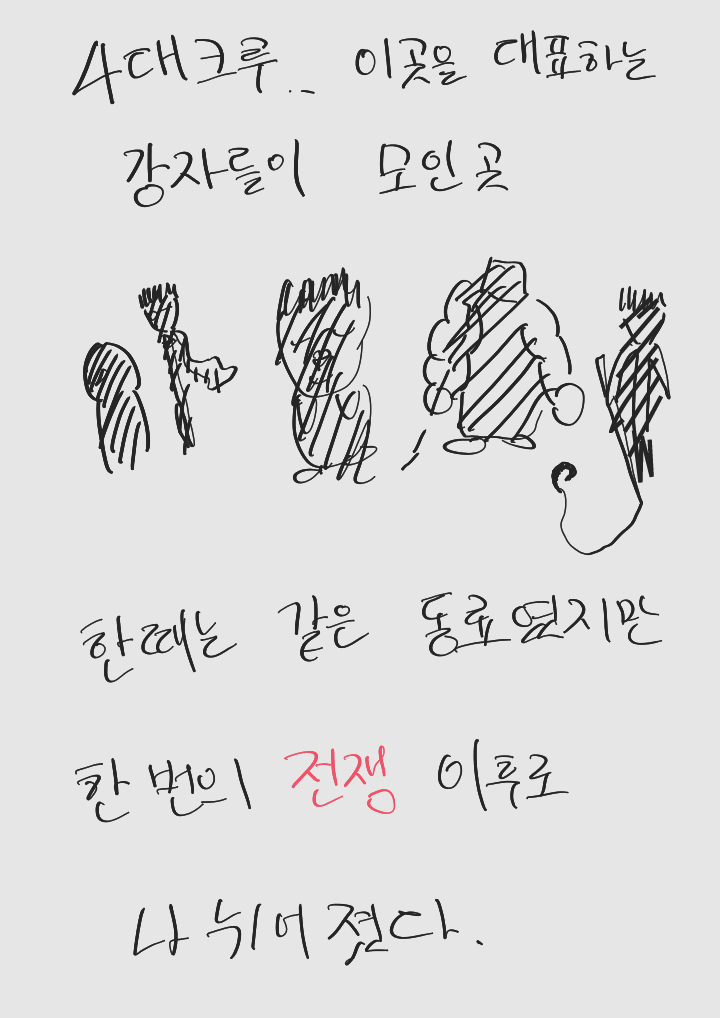 4대크루... 이곳을 대표하는
강자들이 모인곳
한때는 같은 동료였지만
한 번의 전쟁 이후로
나뉘어졌다.